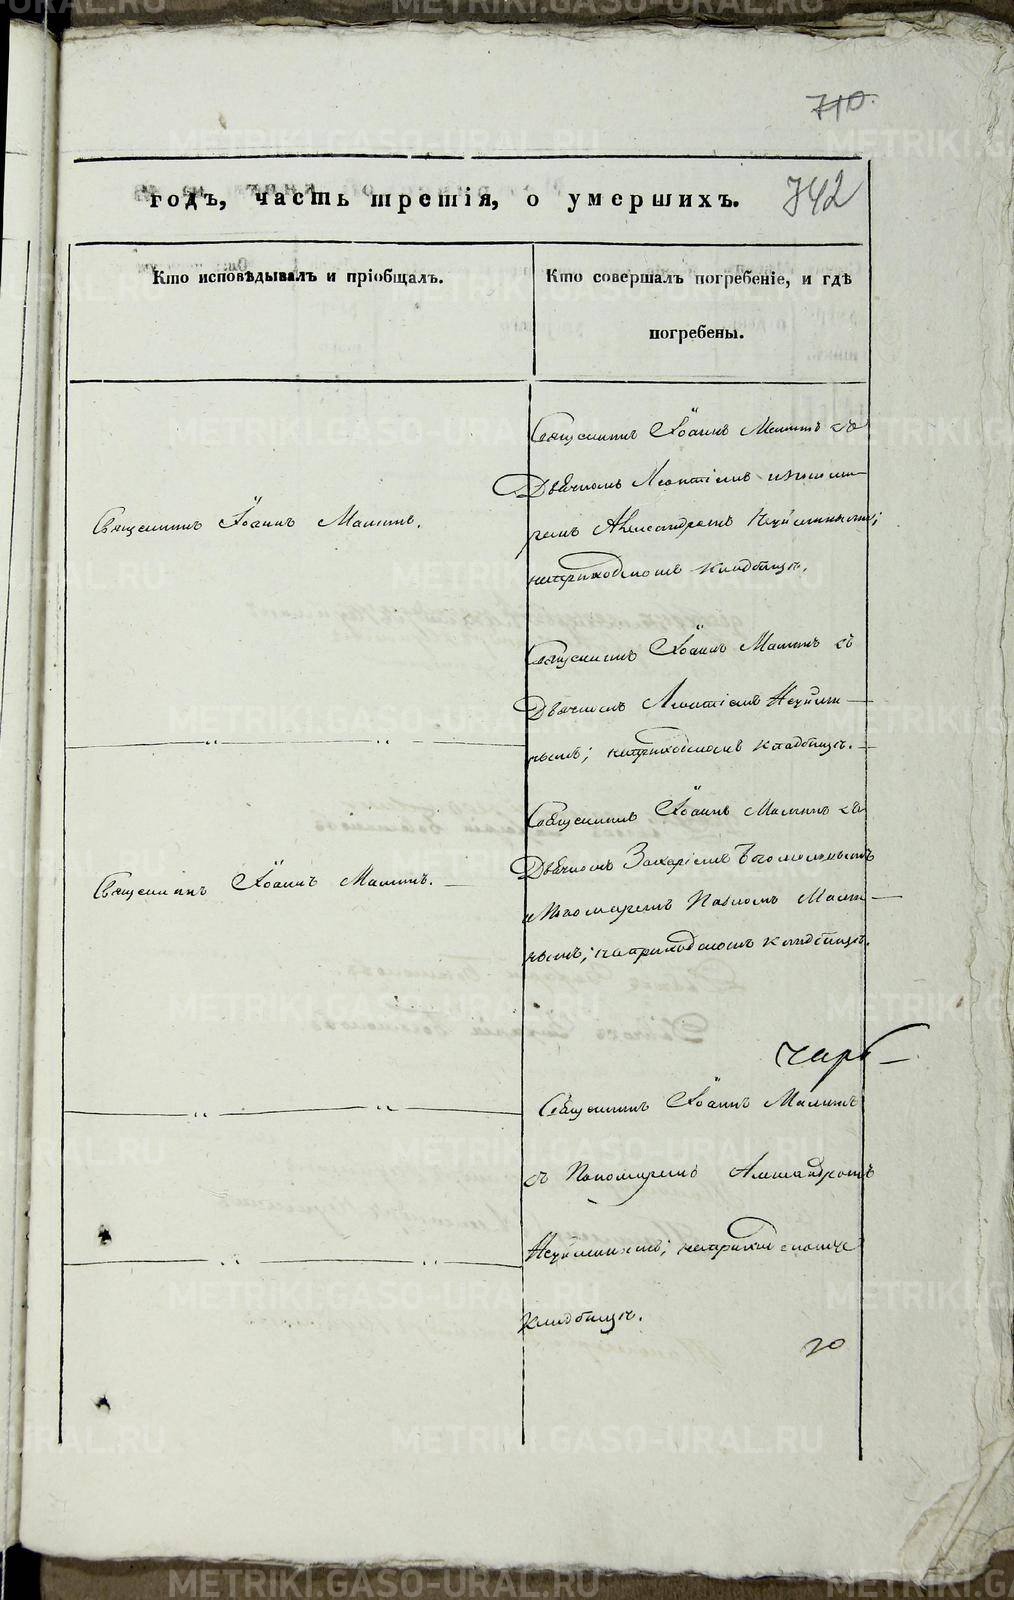 710.
742
годъ, часть третія, о умершихъ.
Кто исповѣдывалъ и пріобщалъ.
Кто совершалъ погребеніе, и гдѣ
погребены.
Священникъ Іоаннъ Малинъ.
Священникъ Іоаннъ Малинъ съ
Дьячкомъ Леонтіемъ и пономаремъ
Александромъ
на приходскомъ кладбищѣ.
Священникъ Іоаннъ Малинъ съ
Дьячкомъ Леонтіемъ
на приходскомъ кладбищѣ.
Священникъ Іоаннъ Малинъ.
Священникъ Іоаннъ Малинъ съ
Дьячкомъ Захаріемъ Богомоловымъ
и Пономаремъ Павломъ
на приходскомъ кладбищѣ.
Священникъ Іоаннъ Малинъ
съ Пономаремъ Александромъ
на приходскомъ
кладбищѣ.
METRIKI.GASO-URAL.RU